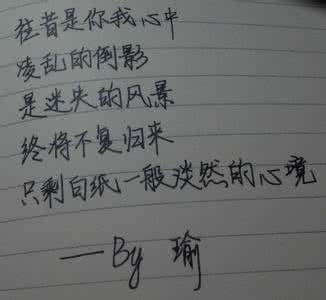 往昔是你我心中
凌乱的倒影
是迷失的风景
终将不复归来
只剩白纸一般淡然的心境
—By 瑜